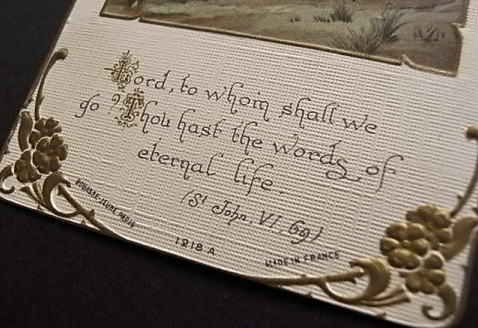 Lord, to whom shall we
go? Thou hast the words of
eternal life.
(St John, VI, 69)
BOUASSE-JEUNE PARIS
1218 A
MADE IN FRANCE